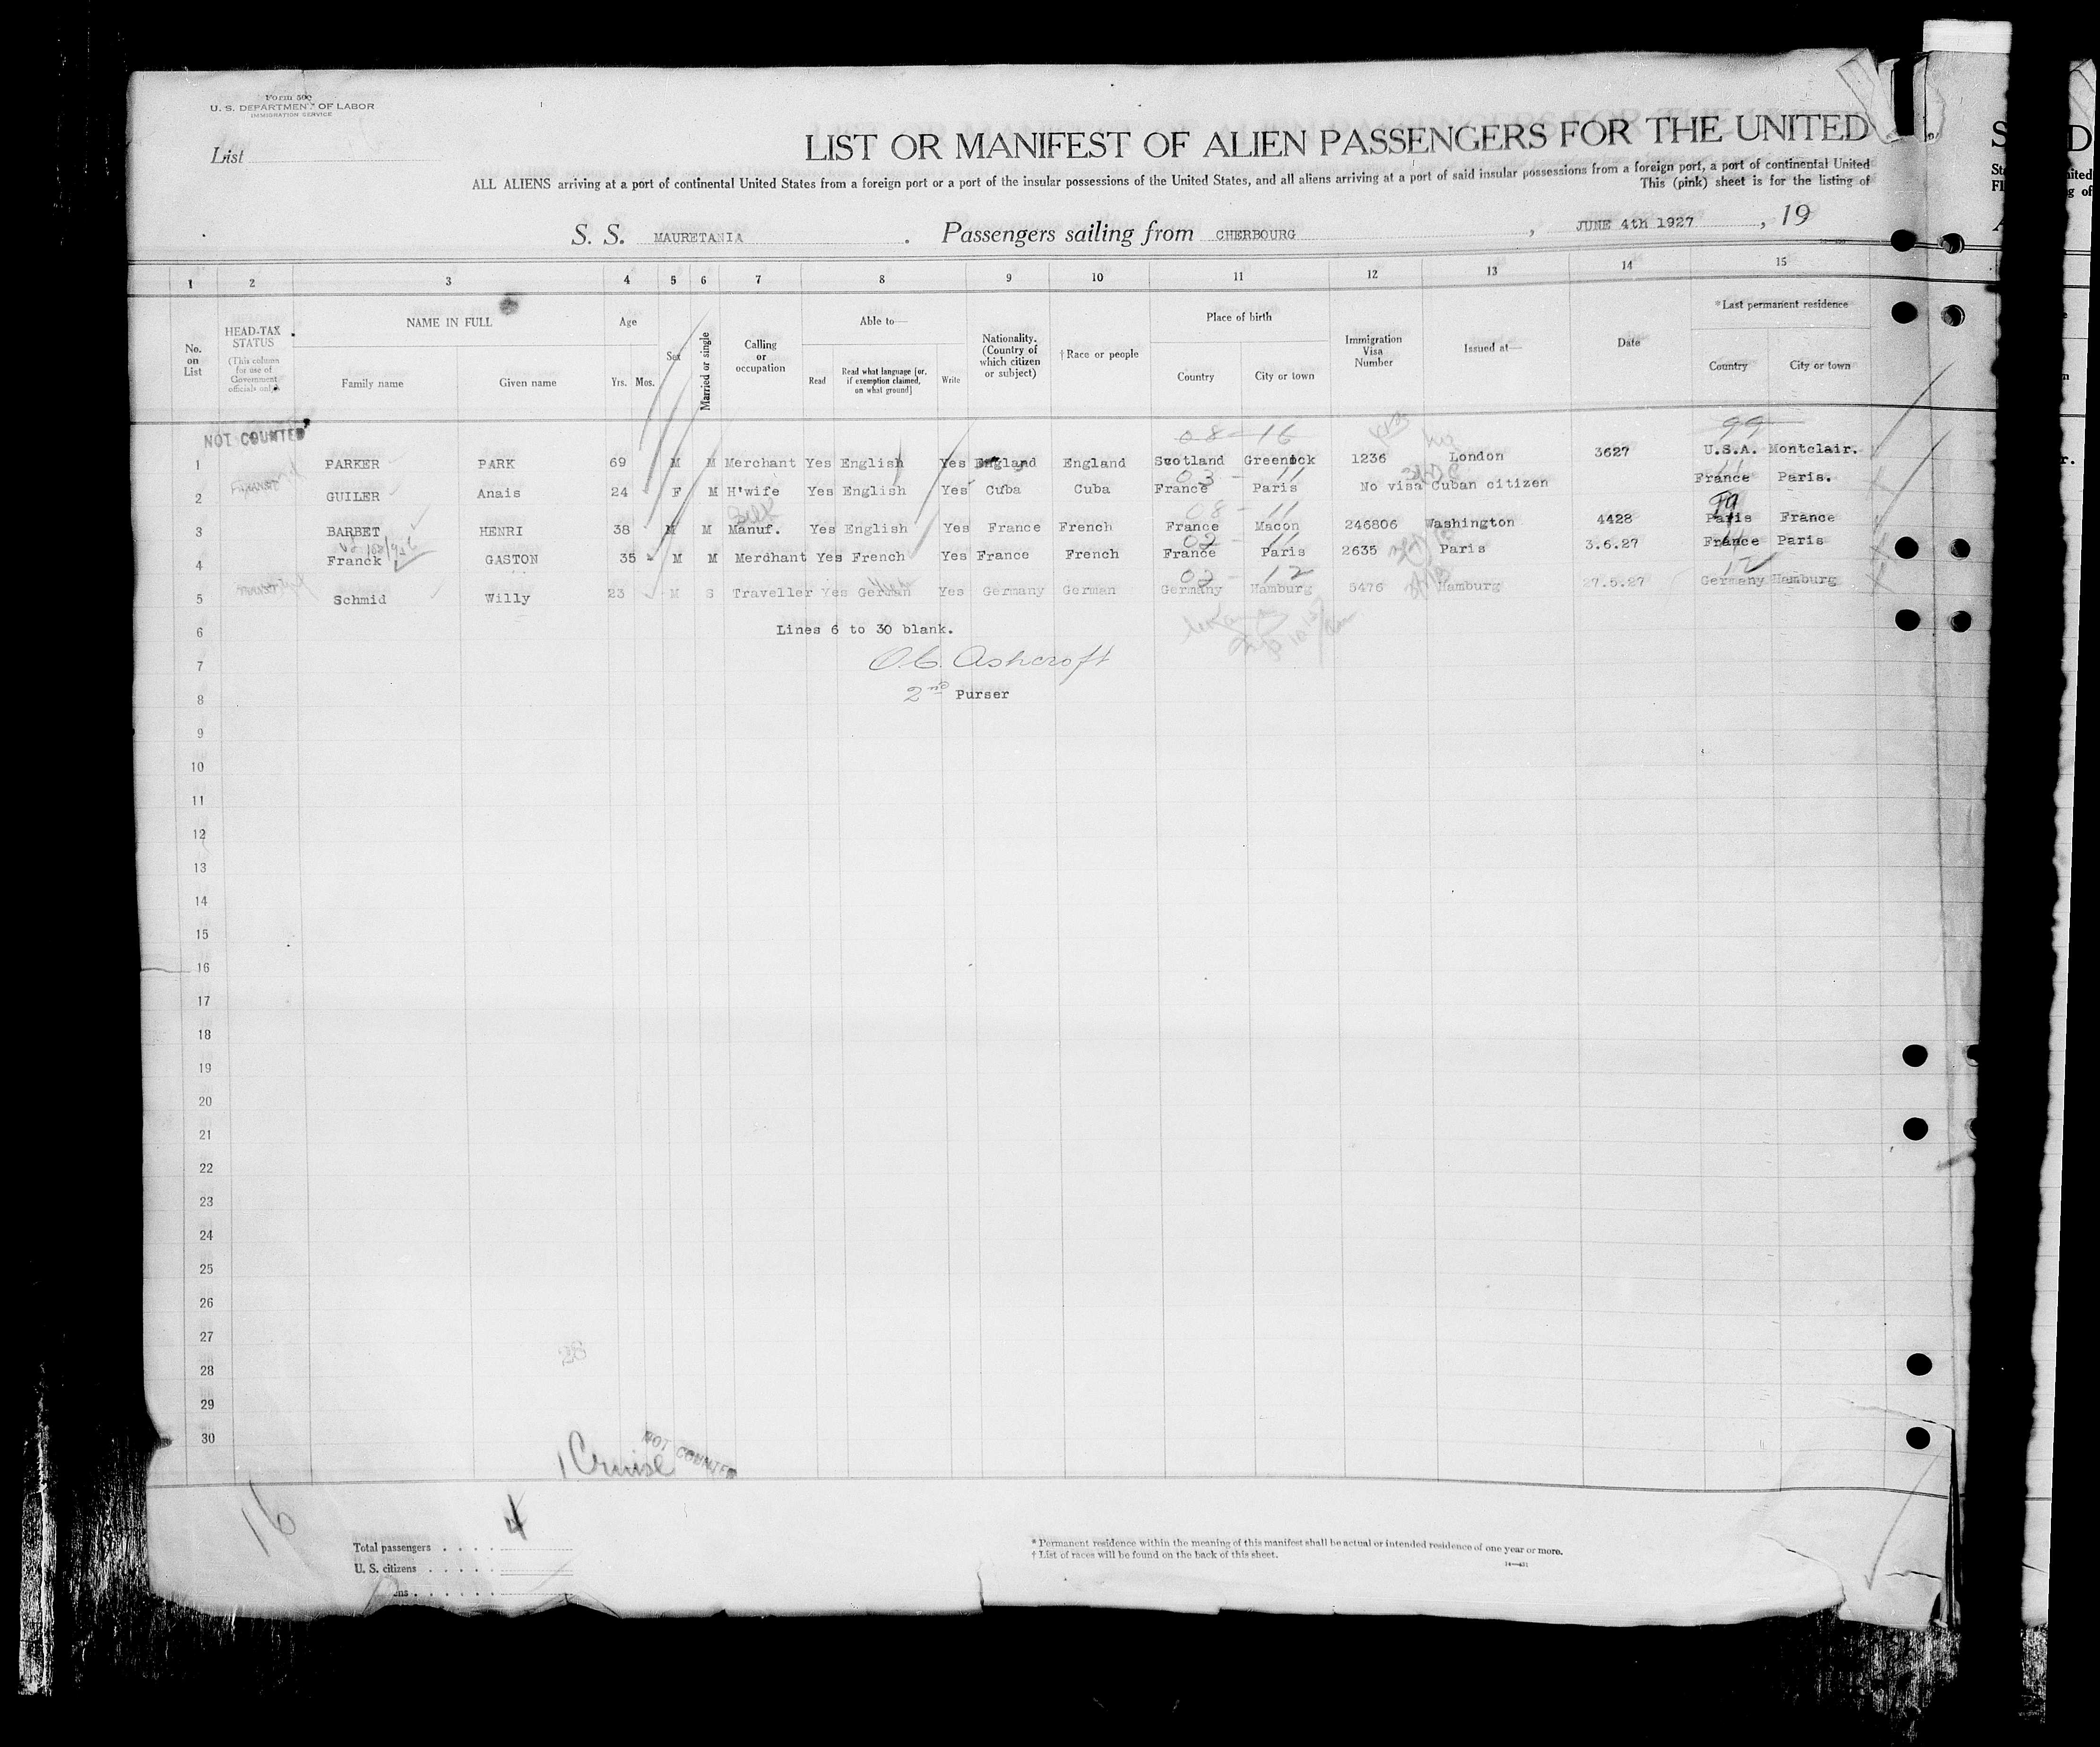 Form 500
U. S. DEPARTMENT OF LABOR
IMMIGRATION SERVICE
List
LIST OR MANIFEST OF ALIEN PASSENGERS FOR THE UNITED
ALL ALIENS arriving at a port of continental United States from a foreign port or a port of the insular possessions of the United States, and all aliens arriving at a port of said insular possessions from a foreign port, a port of continental United
This (pink) sheet is for the listing of
S. S. MAURETANIA . Passengers sailing from CHERBOURG , JUNE 4th 1927 , 19
1 2 3 4 5 6 7 8 9 10 11 12 13 14 15
No. on List
HEAD-TAX STATUS
(This column for use of Government officials only)
NAME IN FULL
Family name Given name
Age
Yrs. Mos.
Sex
Married or single
Calling or occupation
Able to—
Read Read what language [or, if exemption claimed, on what ground] Write
Nationality. (Country of which citizen or subject)
† Race or people
Place of birth
Country City or town
Immigration Visa Number
Issued at—
Date
* Last permanent residence
Country City or town
NOT COUNTED
08-16 99
1 PARKER PARK 69 M M Merchant Yes English Yes England England Scotland Greenock 1236 London 3627 U.S.A. Montclair.
03-11 11
2 GUILER Anais 24 F M H'wife Yes English Yes Cuba Cuba France Paris No visa Cuban citizen France Paris.
Silk 08-11 99
3 BARBET HENRI 38 M M Manuf. Yes English Yes France French France Macon 246806 Washington 4428 Paris France
02-11 11
4 Franck GASTON 35 M M Merchant Yes French Yes France French France Paris 2635 Paris 3.6.27 France Paris
02-12 12
5 Schmid Willy 23 M S Traveller Yes German Yes Germany German Germany Hamburg 5476 Hamburg 27.5.27 Germany Hamburg
6 Lines 6 to 30 blank.
7 O.C. Ashcroft
8 2nd Purser
9
10
11
12
13
14
15
16
17
18
19
20
21
22
23
24
25
26
27
28
29
30
28
1 Cruise NOT COUNTED
16
4
Total passengers . . . .
U. S. citizens . . . . .
* Permanent residence within the meaning of this manifest shall be actual or intended residence of one year or more.
† List of races will be found on the back of this sheet.